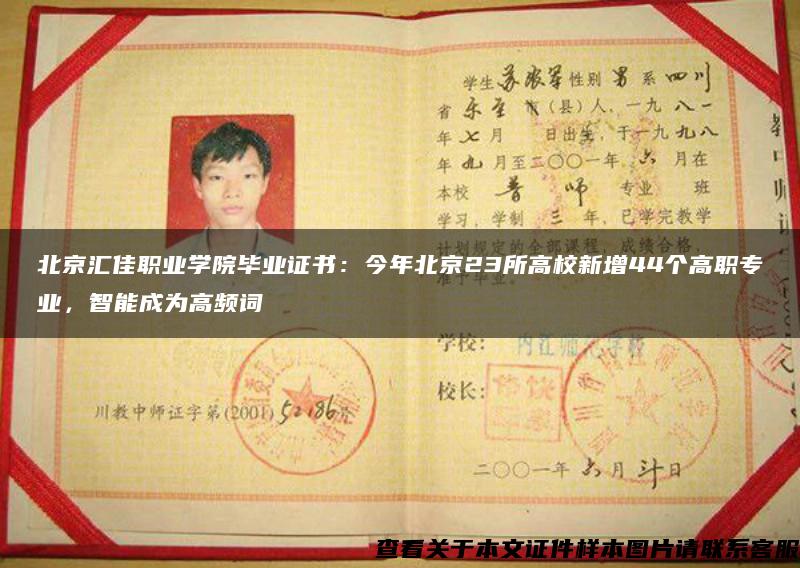 学生 苏 军 性别 男 系 四川
省 乐至 市(县)人，一九 八一
年 七 月 日出生，于一九 九八
年 九 月至二〇〇一年 六 月在
本校 普 师 专业 班
学习，学制 三 年，已学完教学
计划规定的全部课程，成绩合格，
准予毕业。
北京汇佳职业学院毕业证书：今年北京23所高校新增44个高职专
业，智能成为高频词
学校： 内江师范学校
校长：
川教中师证字第(2001) 52186号
二〇〇一年 六 月 日
查看关于本文证件样本图片请联系客服